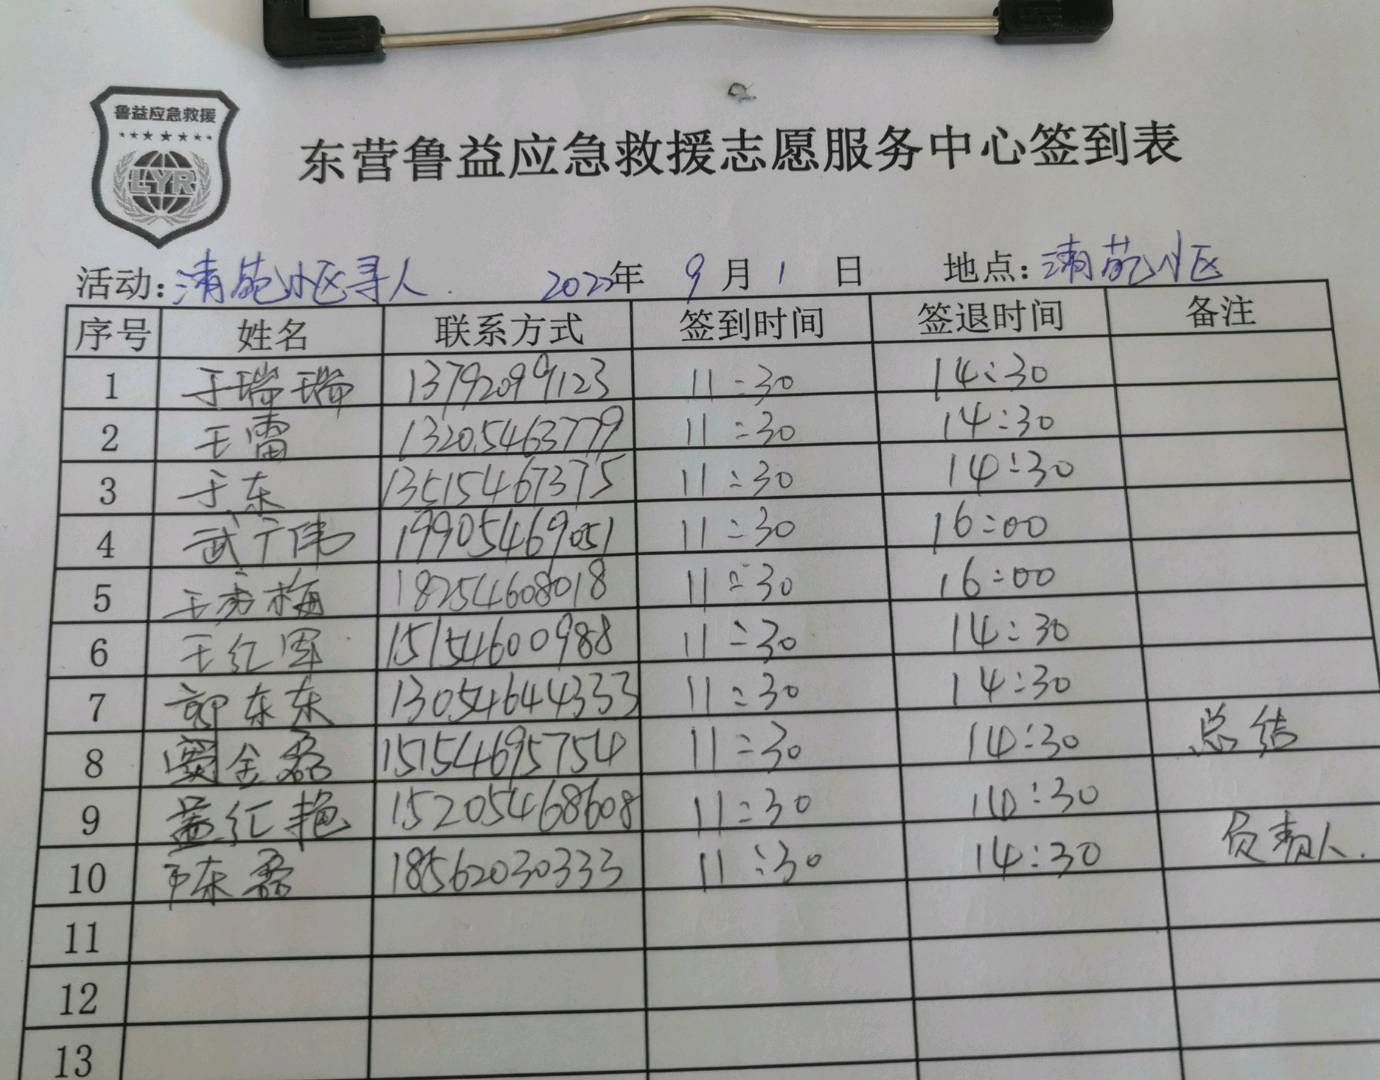 鲁益应急救援
LYR
东营鲁益应急救援志愿服务中心签到表
活动:清苑小区寻人. 2022年 9月1日 地点:清苑小区
序号 姓名 联系方式 签到时间 签退时间 备注
1 于瑞瑞 13792099123 11:30 14:30
2 王雷 13205463779 11:30 14:30
3 于东 13515467375 11:30 14:30
4 武广伟 19905469051 11:30 16:00
5 王秀梅 18254608018 11:30 16:00
6 王红军 15154600988 11:30 14:30
7 郭东东 13054644333 11:30 14:30
8 窦金磊 15154695754 11:30 14:30 总结
9 盖红艳 15205468608 11:30 14:30
10 陈磊 18562030333 11:30 14:30 负责人.
11
12
13